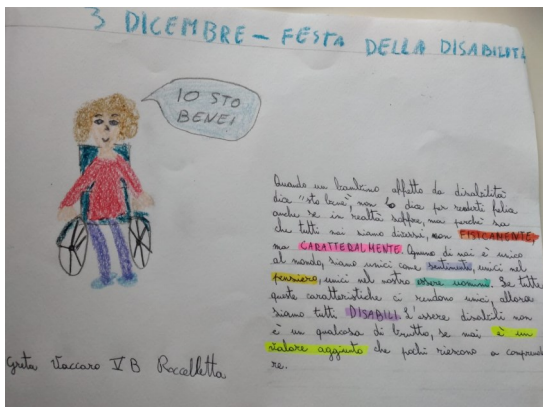 3 DICEMBRE - FESTA DELLA DISABILITÀ
IO STO
BENE!
Quando un bambino affetto da disabilità
dice "sto bene", non lo dice per renderti felice
anche se in realtà soffre, ma perché sa
che tutti noi siamo diversi, non FISICAMENTE,
ma CARATTERALMENTE. Ognuno di noi è unico
al mondo, siamo unici come sentimento, unici nel
pensiero, unici nel nostro essere uomini. Se tutte
queste caratteristiche ci rendono unici, allora
siamo tutti DISABILI. L'essere disabili non
è un qualcosa di brutto, se mai, è un
valore aggiunto che pochi riescono a comprende
re.
Greta Vaccaro V B Roccelletta